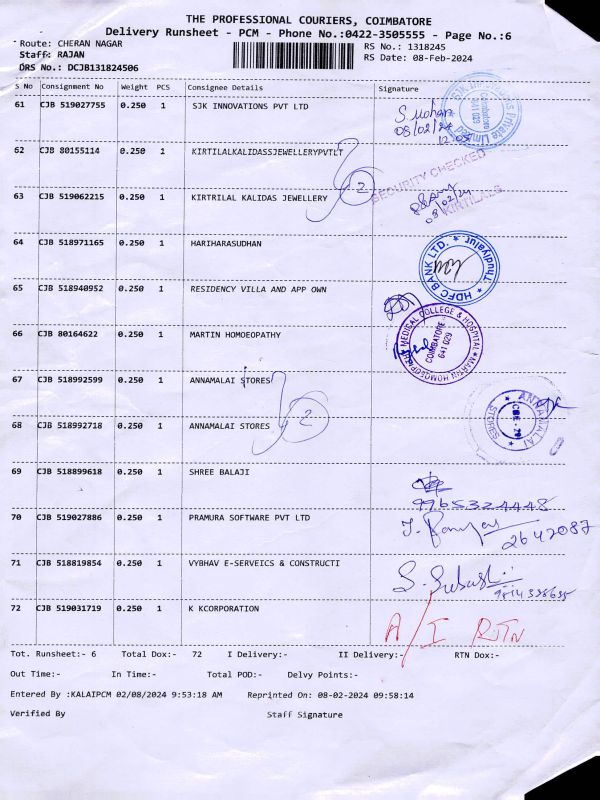 THE PROFESSIONAL COURIERS, COIMBATORE
Delivery Runsheet - PCM - Phone No.:0422-3505555 - Page No.:6
Route: CHERAN NAGAR
RS No.: 1318245
Staff: RAJAN
RS Date: 08-Feb-2024
DRS No.: DCJB131824506
S No Consignment No Weight PCS Consignee Details Signature
61 CJB 519027755 0.250 1 SJK INNOVATIONS PVT LTD
08/02/24
62 CJB 80155114 0.250 1 KIRTILALKALIDASSJEWELLERYPVTLT
2
SECURITY CHECKED
KIRTILALS
63 CJB 519062215 0.250 1 KIRTRILAL KALIDAS JEWELLERY
08/02/24
64 CJB 518971165 0.250 1 HARIHARASUDHAN
★ HDFC BANK LTD. ★ Thudiyalur
65 CJB 518940952 0.250 1 RESIDENCY VILLA AND APP OWN
66 CJB 80164622 0.250 1 MARTIN HOMOEOPATHY
MEDICAL COLLEGE & HOSPITAL ★ MARTIN HOMOEOPATHY
COIMBATORE
641 029
67 CJB 518992599 0.250 1 ANNAMALAI STORES
2
68 CJB 518992718 0.250 1 ANNAMALAI STORES
ANNAMALAI STORES
69 CJB 518899618 0.250 1 SHREE BALAJI
9965324448
70 CJB 519027886 0.250 1 PRAMURA SOFTWARE PVT LTD
2642087
71 CJB 518819854 0.250 1 VYBHAV E-SERVEICS & CONSTRUCTI
72 CJB 519031719 0.250 1 K KCORPORATION
A/I RTN
Tot. Runsheet:- 6 Total Dox:- 72 I Delivery:- II Delivery:- RTN Dox:-
Out Time:- In Time:- Total POD:- Delvy Points:-
Entered By :KALAIPCM 02/08/2024 9:53:18 AM Reprinted On: 08-02-2024 09:58:14
Verified By Staff Signature